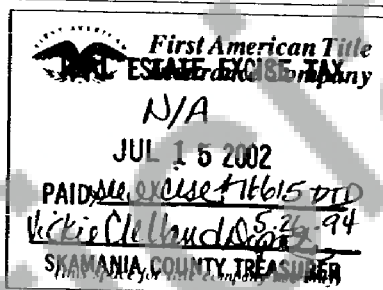 First American Title
Insurance Company
REAL ESTATE EXCISE TAX
N/A
JUL 15 2002
PAID see excise # 16615 DTD
Vickie Clelland 5.26.94
SKAMANIA COUNTY TREASURER